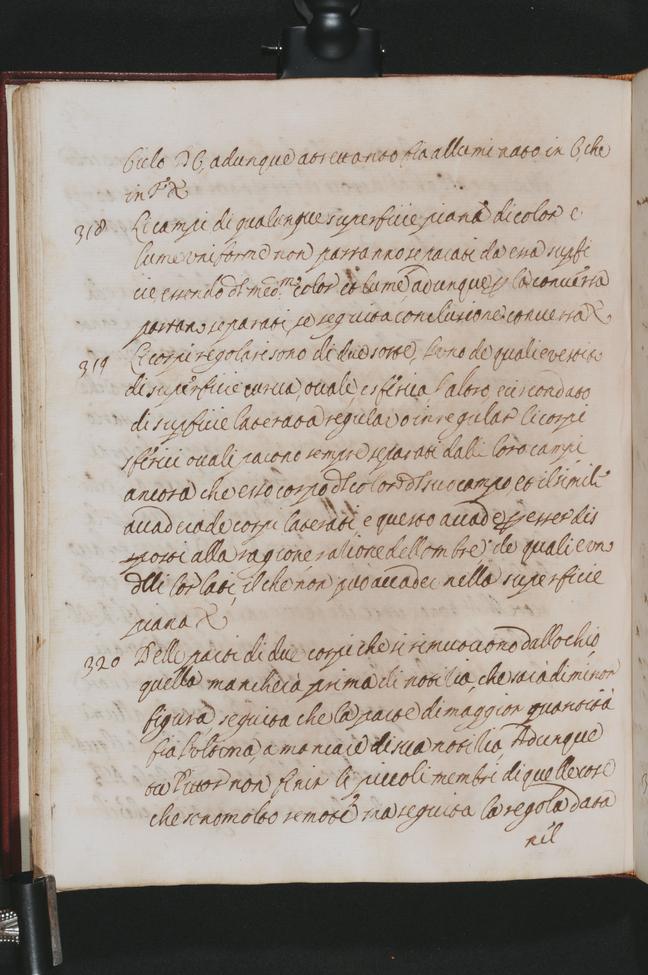 Cielo DC, adunque atretanto fia alluminato in C, che
in F &
318 Li campi di qualunque superficie piana di color e
lume uniforme non parranno separati da essa supfi
cie essendo del med.mo color et lume, adunque p la conversa
parran separati, se seguita conclusione conversa &
319 Li corpi regolari sono di due sorte, l'uno de quali è vestito
di superficie curva, ovale, e sferica, l'altro, è circondato
di supficie laterata regular o inregular li corpi
sferici ovali paiono sempre separati dalli loro campi
ancora che esso corpo del color del suo campo, et il simile
accaderà de corpi laterati e questo accade p esser dis
posti alla ragione ratione dell ombre de quali è un
delli lor lati, il che non può accader nella superficie
piana &
320 Delle parti di due corpi che si rimuovono dall ochio
quella mancherà prima di notitia, che sarà di minor
figura seguita che la parte di maggior quantità
fia l'ultima a mancare di sua notitia Adunque
tu Pittor non finir li piccoli membri di quelle cose
che son molto remote ma seguita la regola data
nil